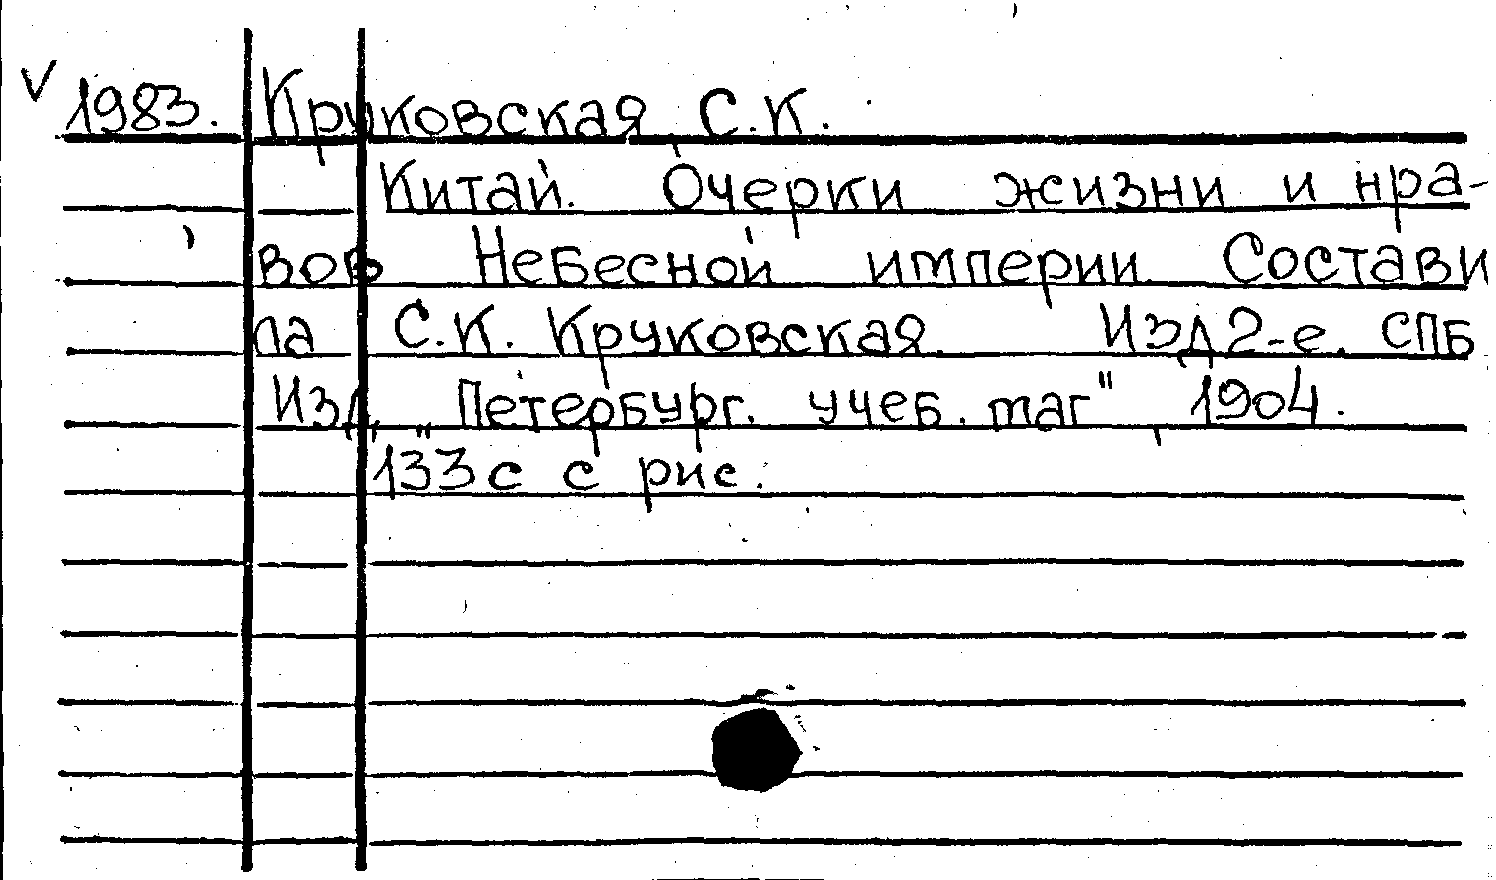 √ 1983. Круковская С.К.
Китай. Очерки жизни и нра-
вов Небесной империи Состави
ла С.К. Круковская. Изд 2-е. СПБ
Изд. „Петербург. учеб. маг" 1904.
133 с с рис.